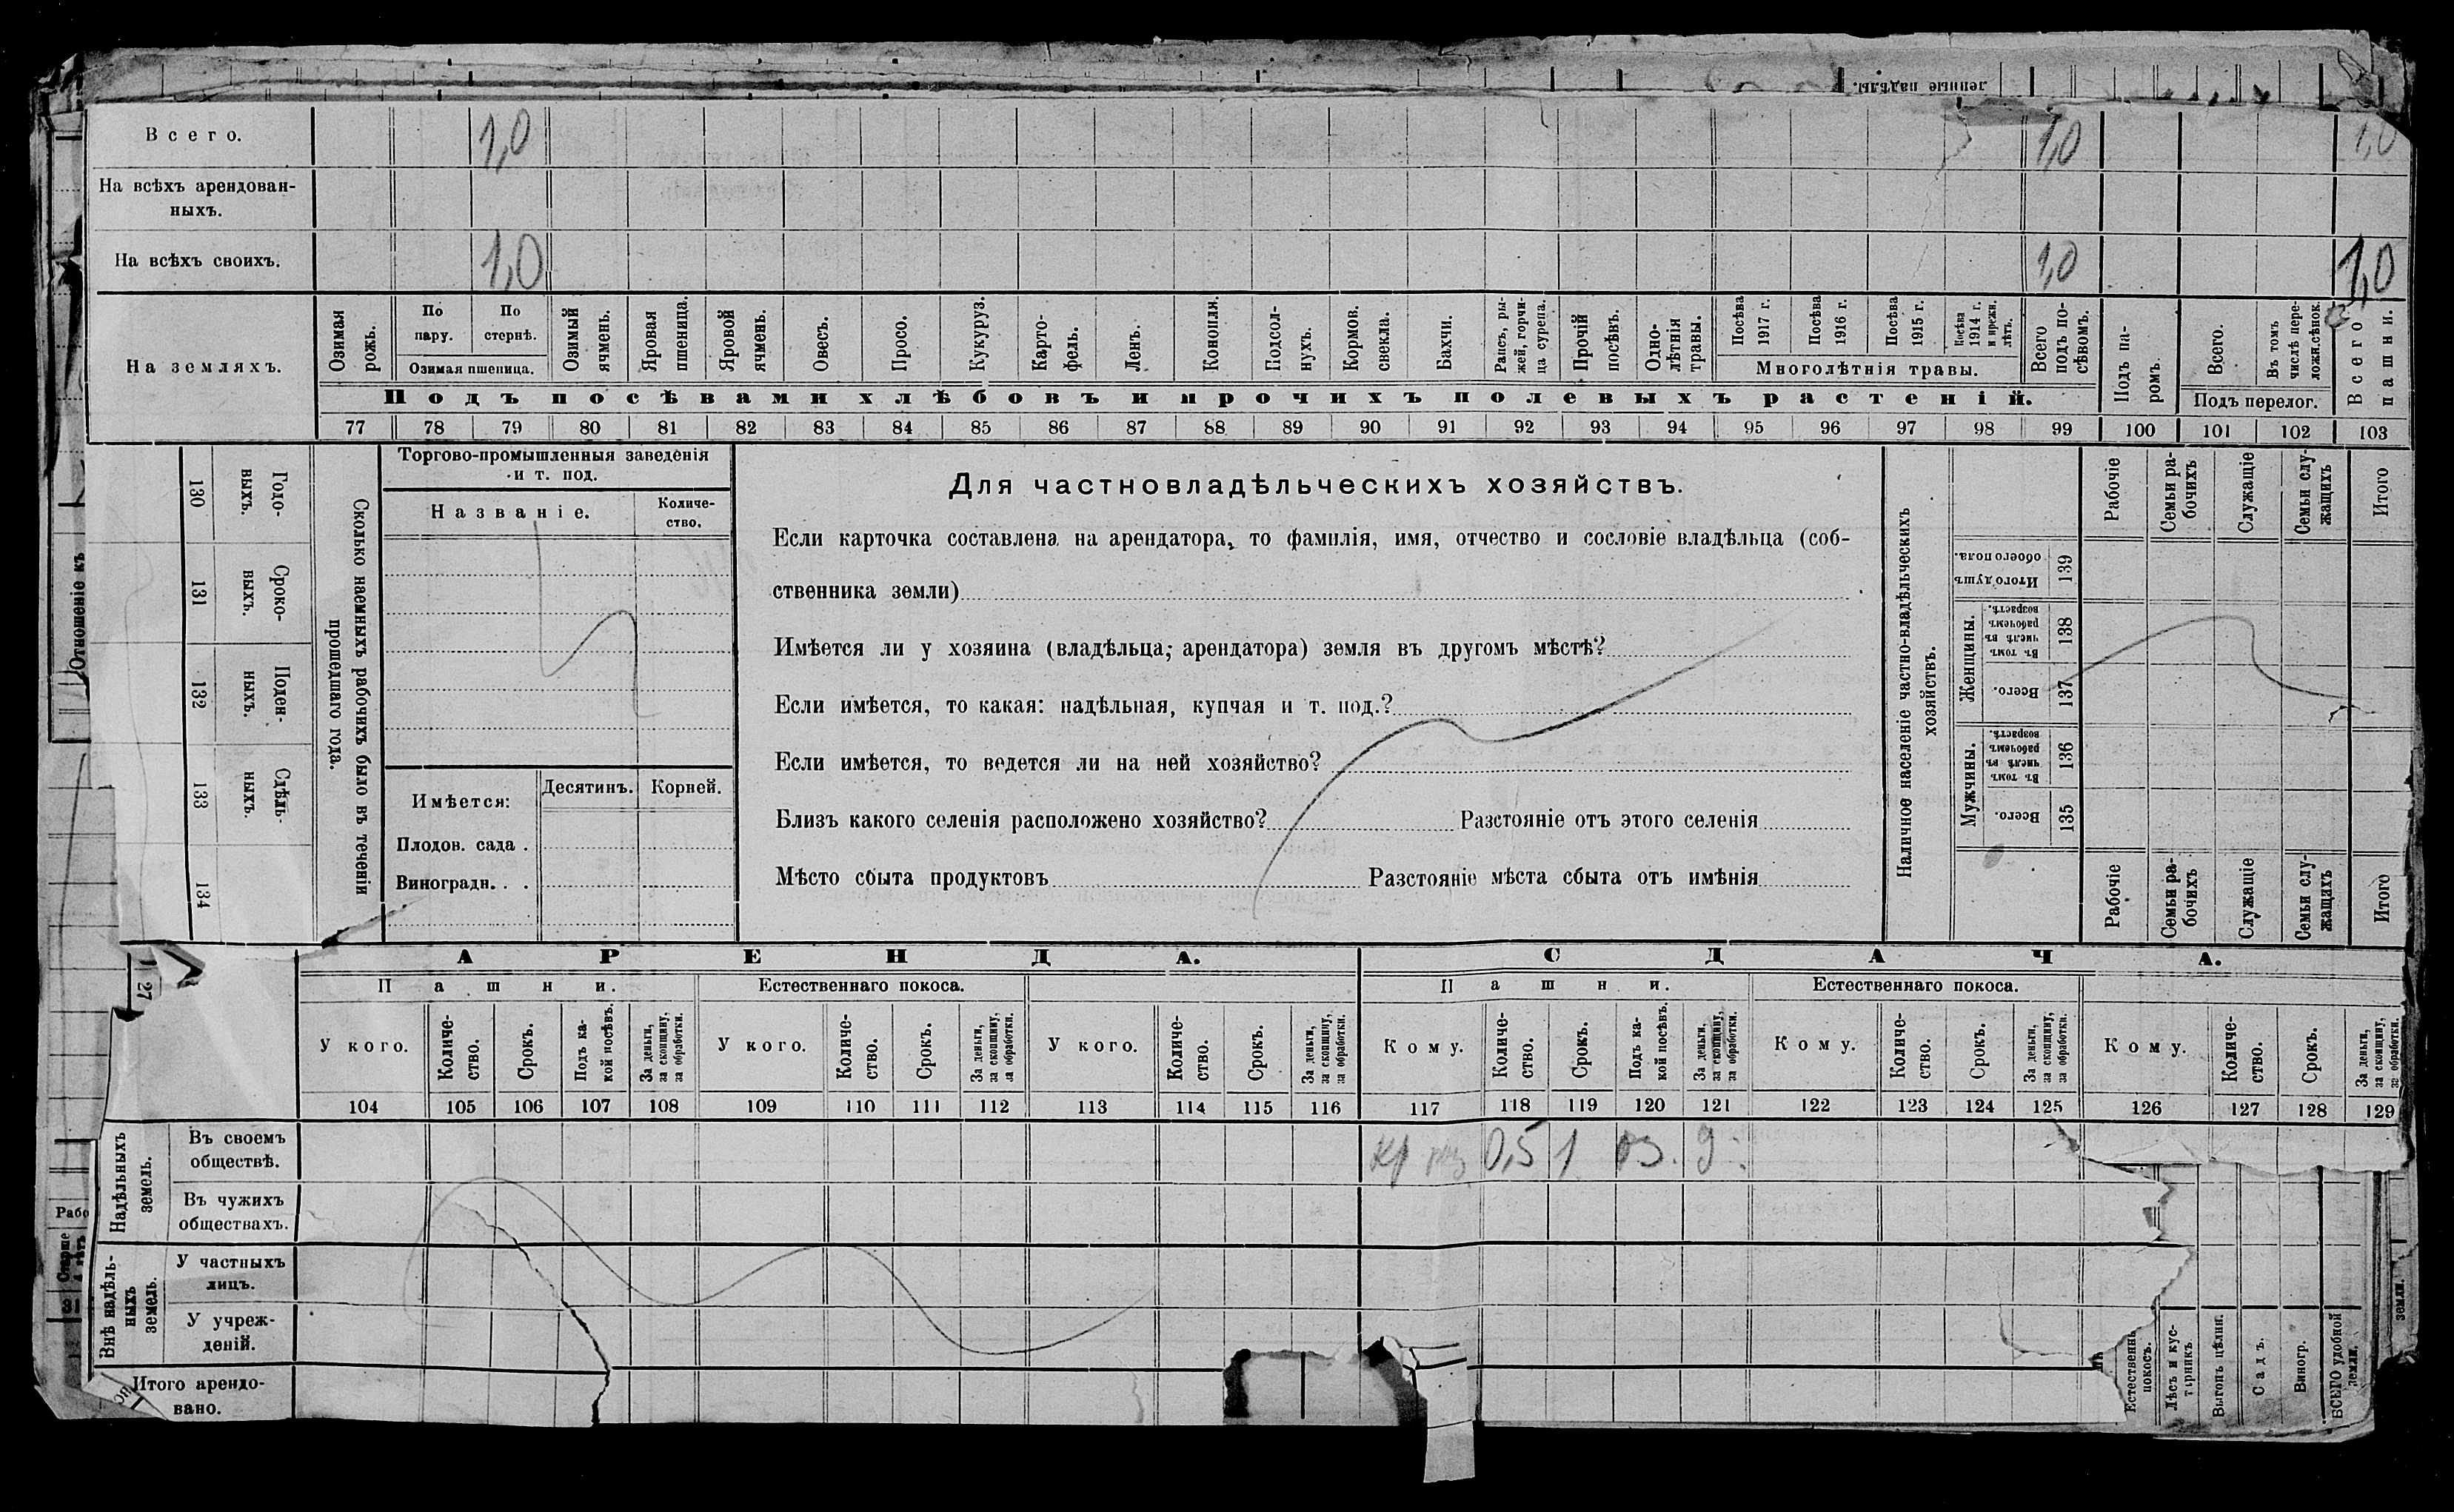 ленные надѣлы.
Всего. 1,0 1,0 1,0
На всѣхъ арендован-
ныхъ.
На всѣхъ своихъ. 1,0 1,0 1,0
На земляхъ.
Озимая рожь.
По пару.
По стернѣ.
Озимая пшеница.
Озимый ячмень.
Яровая пшеница.
Яровой ячмень.
Овесъ.
Просо.
Кукуруз.
Карто-
фель.
Ленъ.
Конопля.
Подсол-
нухъ.
Кормов. свекла.
Бахчи.
Рапсъ, ры-
жей, горчи-
ца сурепа.
Прочій посѣвъ.
Одно-
лѣтнія травы.
Посѣва 1917 г.
Посѣва 1916 г.
Посѣва 1915 г.
Посѣва 1914 г. и прежн. лѣтъ.
Многолѣтнія травы.
Всего подъ по-
сѣвомъ.
Подъ па-
ромъ.
Всего.
Въ томъ числѣ пере-
ложн.сѣнок.
Подъ перелог.
Всего пашни.
Подъ посѣвами хлѣбовъ и прочихъ полевыхъ растеній.
77 78 79 80 81 82 83 84 85 86 87 88 89 90 91 92 93 94 95 96 97 98 99 100 101 102 103
Отношеніе къ
130 Годо-
ныхъ.
131 Сроко-
ныхъ.
132 Поден-
ныхъ.
133 Сдѣль-
ныхъ.
134
Сколько наемныхъ рабочихъ было въ теченіи
прошедшаго года.
Торгово-промышленныя заведенія
и т. под.
Названіе.
Количе-
ство.
Имѣется: Десятинъ. Корней.
Плодов. сада .
Виноградн. . .
Для частновладѣльческихъ хозяйствъ.
Если карточка составлена на арендатора, то фамилія, имя, отчество и сословіе владѣльца (соб-
ственника земли)
Имѣется ли у хозяина (владѣльца, арендатора) земля въ другомъ мѣстѣ?
Если имѣется, то какая: надѣльная, купчая и т. под.?
Если имѣется, то ведется ли на ней хозяйство?
Близъ какого селенія расположено хозяйство? Разстояніе отъ этого селенія
Мѣсто сбыта продуктовъ Разстояніе мѣста сбыта отъ имѣнія
Наличное населеніе частно-владѣльческихъ
хозяйствъ.
Рабочіе
Семьи ра-
бочихъ
Служащіе
Семьи слу-
жащихъ
Итого
Итого душъ обоего пола. 139
Женщины.
Въ томъ числѣ въ рабочемъ возрастѣ. 138
Всего. 137
Мужчины.
Въ томъ числѣ въ рабочемъ возрастѣ. 136
Всего. 135
Рабочіе
Семьи ра-
бочихъ
Служащіе
Семьи слу-
жащихъ
Итого
27
АРЕНДА. СДАЧА.
Пашни. Естественнаго покоса. Пашни. Естественнаго покоса.
У кого.
Количе-
ство.
Срокъ.
Подъ ка-
кой посѣвъ.
За деньги,
за скопщину,
за обработки.
У кого.
Количе-
ство.
Срокъ.
За деньги,
за скопщину,
за обработки.
У кого.
Количе-
ство.
Срокъ.
За деньги,
за скопщину,
за обработки.
Кому.
Количе-
ство.
Срокъ.
Подъ ка-
кой посѣвъ.
За деньги,
за скопщину,
за обработки.
Кому.
Количе-
ство.
Срокъ.
За деньги,
за скопщину,
за обработки.
Кому.
Количе-
ство.
Срокъ.
За деньги,
за скопщину,
за обработки.
104 105 106 107 108 109 110 111 112 113 114 115 116 117 118 119 120 121 122 123 124 125 126 127 128 129
Надѣльныхъ
земель.
Въ своемъ
обществѣ.
кр 0,5 1 оз. д.
Въ чужихъ
обществахъ.
Внѣ надѣль-
ныхъ
земель.
У частныхъ
лицъ.
У учреж-
деній.
Итого арендо-
вано.
Рабо
Старше
31
Естественн.
покосъ.
Лѣсъ и кус-
тарникъ
Выгонъ цѣлин.
Садъ.
Виногр.
ВСЕГО удобной
земли.
земли.